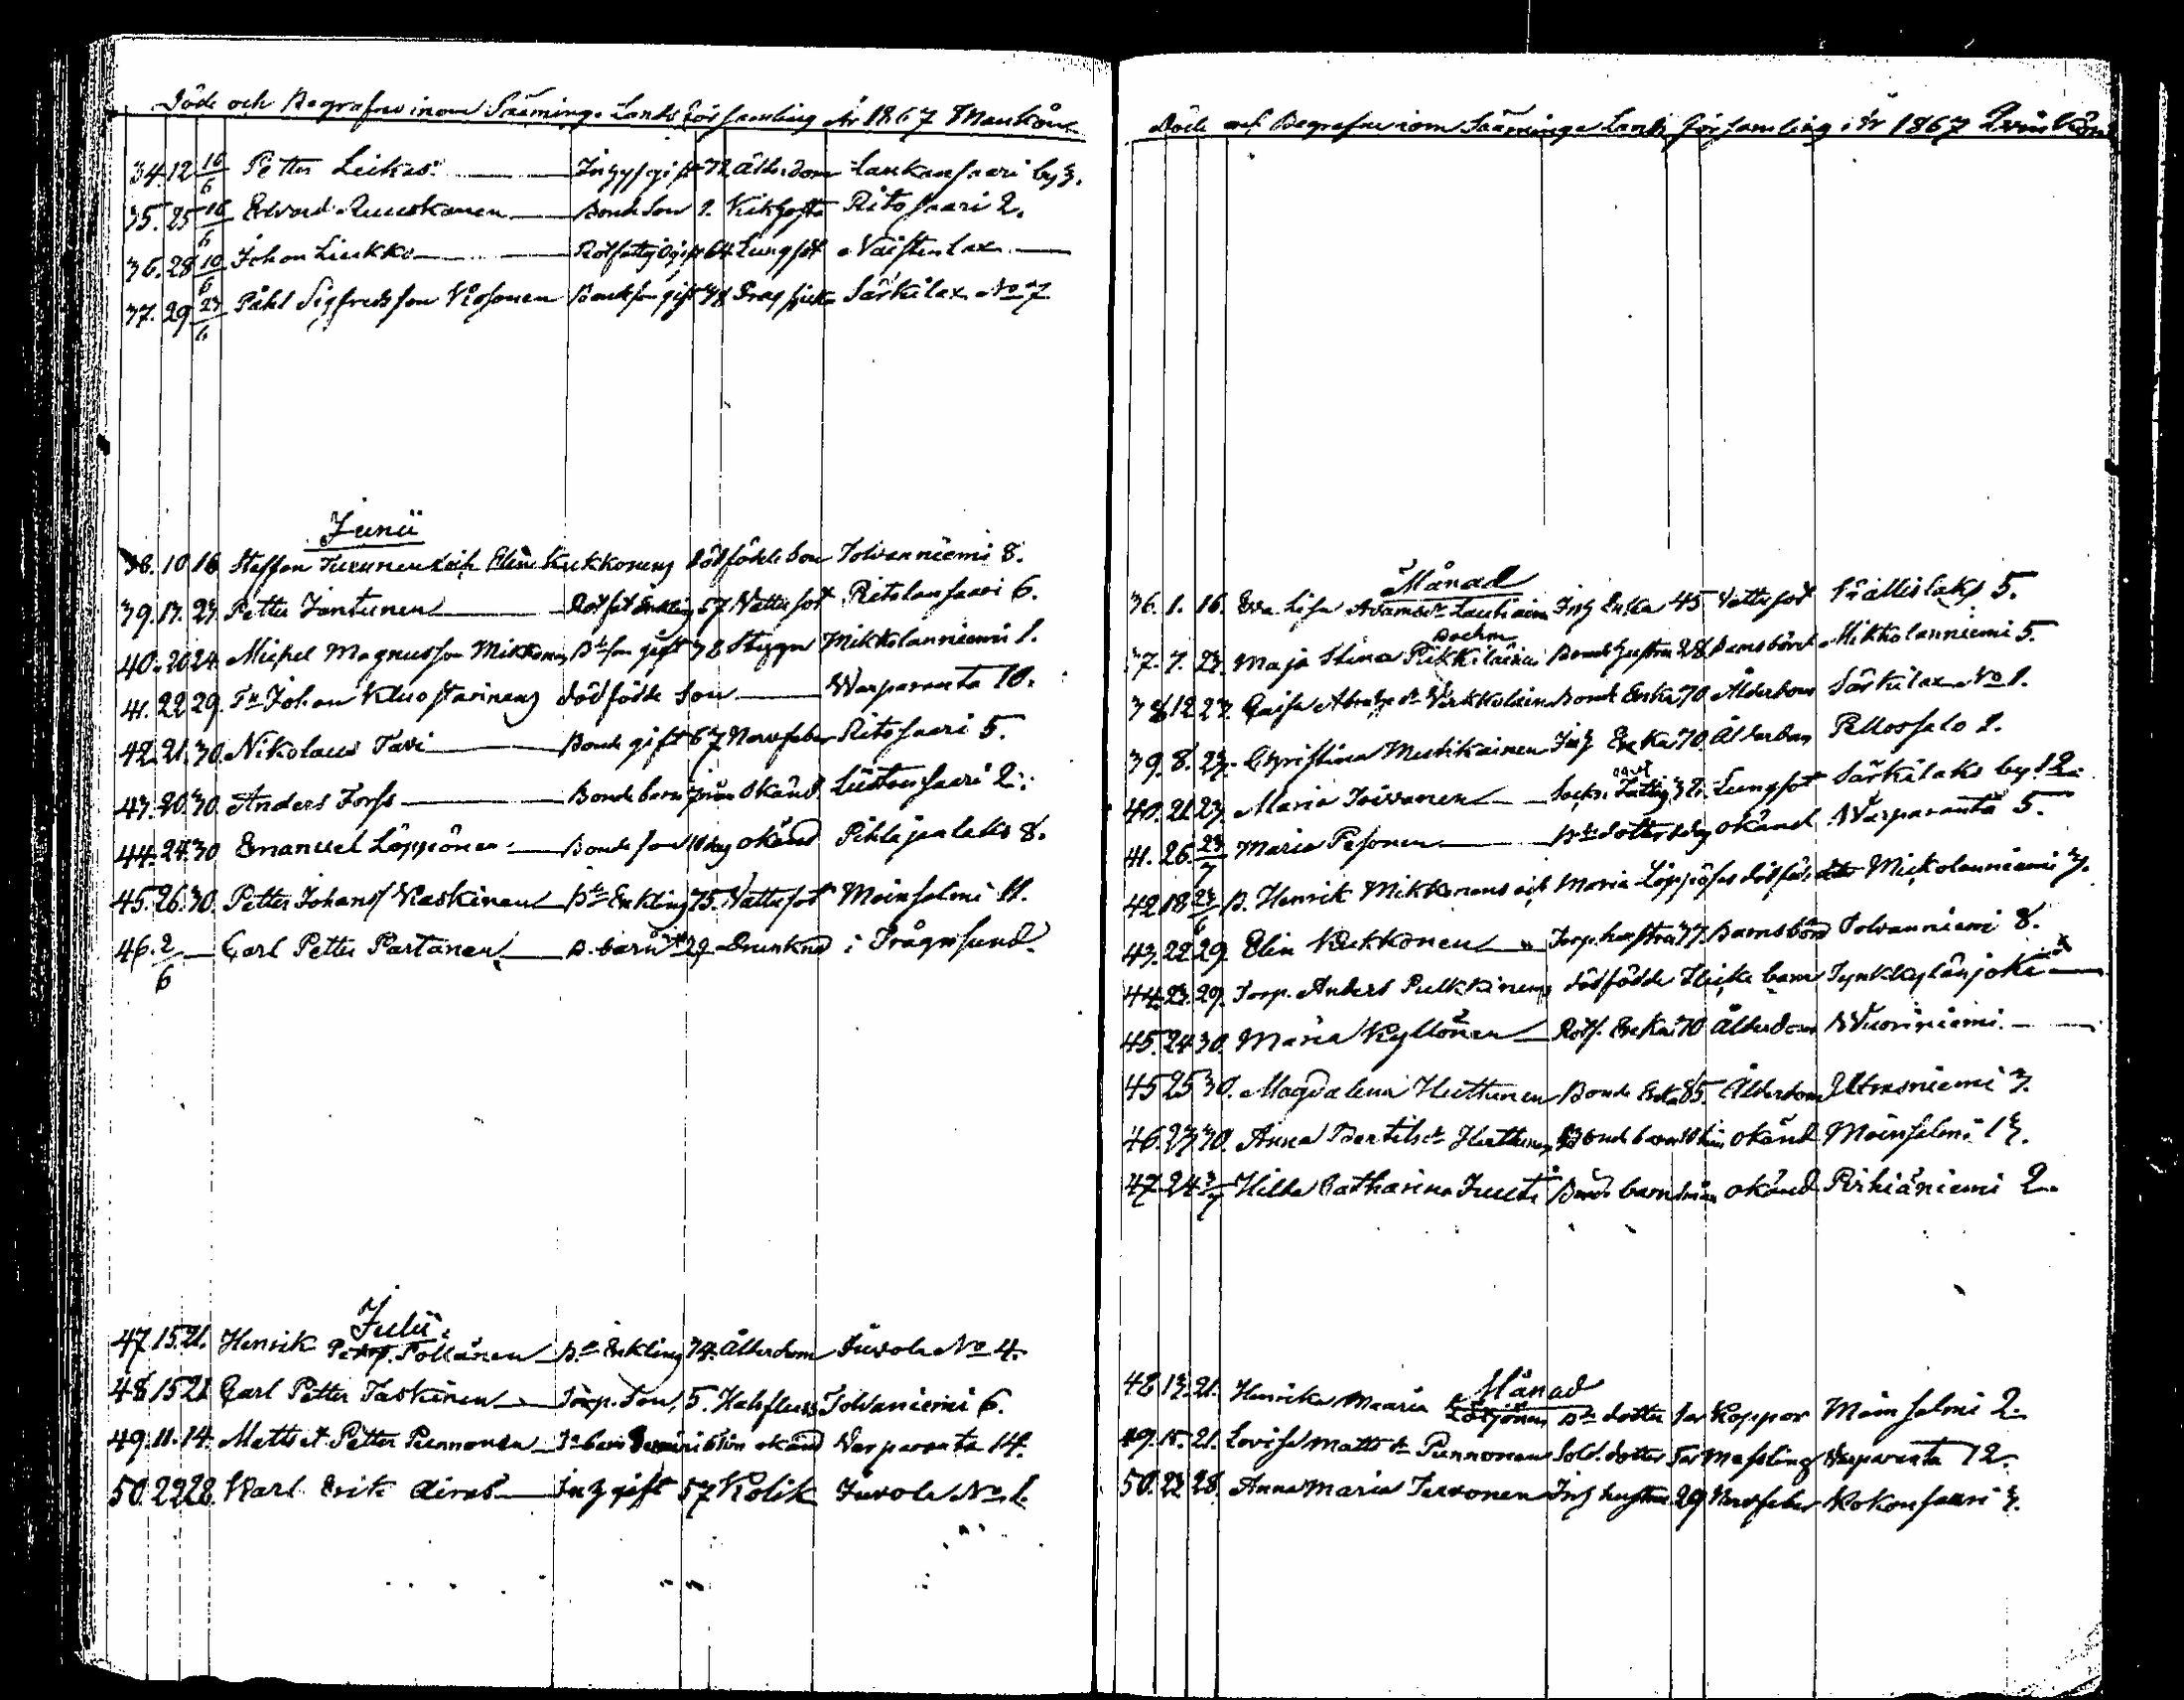 Döde och Begrafne inom Sääminge Lands församling År 1867 Mankön
34. 12 16/6 Petter Leikas Inhys gift 72 Ålderdom Laukansaari by 3.
35. 25 16/6 Edvard Ruuskanen Bonde Son 1. Kikhosta Ritosaari 2.
36. 28 10/6 Johan Liukko Rotfattig gift 64 Lungsot Naistenlax
37. 29 23/6 Påhl Sigfredsson Kosonen Bondeson gift 38 Drag sjuka Särkilax No 7
Junii
38. 10. 16 Staffan Turunens och Elin Kukkonens dödfödde Son Tolvanniemi 8.
39. 13. 23. Petter Jantunen Rotfat Enkling 57 Vattusot Ritolansaari 6.
40. 20 24. Michel Magnusson Mikkonen Bde son gift 38 Styng Mikkolanniemi 1.
41. 22 29. Johan Kuostarinens dödfödde Son Warparanta 10.
42. 21. 30. Nikolaus Tavi Bonde gift 67 Nervfeber Ritosaari 5.
43. 20. 30. Anders Torss Bonde barn okänd Liistonsaari 2.
44. 24. 30 Emanuel Löppönen Bonde son 10 dag okänd Pihlajalaks 8.
45. 26. 30. Petter Johanss Kaskinen Bde Enkling 75. Vattusot Moinsalmi 11.
46. 2/6 Carl Petter Partanen B. barn 22 Drunknad i Trångsund.
Julii
47. 15. 21. Henrik Pöllänen Bde Enkling 74. Ålderdom Juvola No 4.
48. 15 21 Carl Petter Taskinen Torp. Son, 5. Halsfluss Tolvaniemi 6.
49. 11. 14. Matts et Petter Punnonen okänd Varparanta 14.
50. 22 28. Karl Erik Airas Inh gift 57 Kolik Juvola No 1.
Döde och Begrafne inom Sääminge Lands församling i År 1867 Qvinkön
Månad
36. 1. 16. Eva Lisa Adamsdr Lauhiain Inh Enka 45 Vattusot Liallislaks 5.
37. 7. 23. Maja Stina Pikkiläinen Bonde hustru 28 Barnsbörd Mikkolanniemi 5.
38 12 23. Caisa Abrahsdr Verkkolain Bonde Enka 70 Ålderdom Särkilax No 1.
39. 8. 23. Christina Mustikainen Inh Enka 70 Ålderdom Pellossalo 1.
40. 21. 23. Maria Toivanen Sockn. Fattig 32. Lungsot Särkilaks by 12.
41. 26. 23/7 Maria Pesonen Bde dotter okänd Warparanta 5.
42 18 23/6 B. Henrik Mikkonens och Maria Löppönens dödföd Mickolanniemi 3.
43. 22 29. Elin Kukkonen Torp. hustru 37. Barnsbörd Tolvanniemi 8.
44. 23. 29. Torp. Anders Pulkkinens dödfödde flicke barn Tynkkylänjoki
45. 24 30. Maria Kyllönen Rotf. Enka 70 Ålderdom Wuoriniemi
45 25 30. Magdalena Huttunen Bonde Enka 85. Ålderdom Utrasniemi 3.
46. 23 30. Anna Bertilsdr Huttunen Bonde barn okänd Moinsalmi 13.
47. 24 3/7 Hilda Catharina Juuti Bonde barn okänd Pirhiäniemi 2.
Månad
48. 13. 21. Henrika Maria Bde dotter Koppor Moinsalmi 2.
49. 15. 21. Lovisa Matts dr Punnonen Sold. dotter Messling Varparanta 12.
50. 23 28. Anna Maria Tervonen Inh hustru 29 Nervfeber Kokonsaari 3.